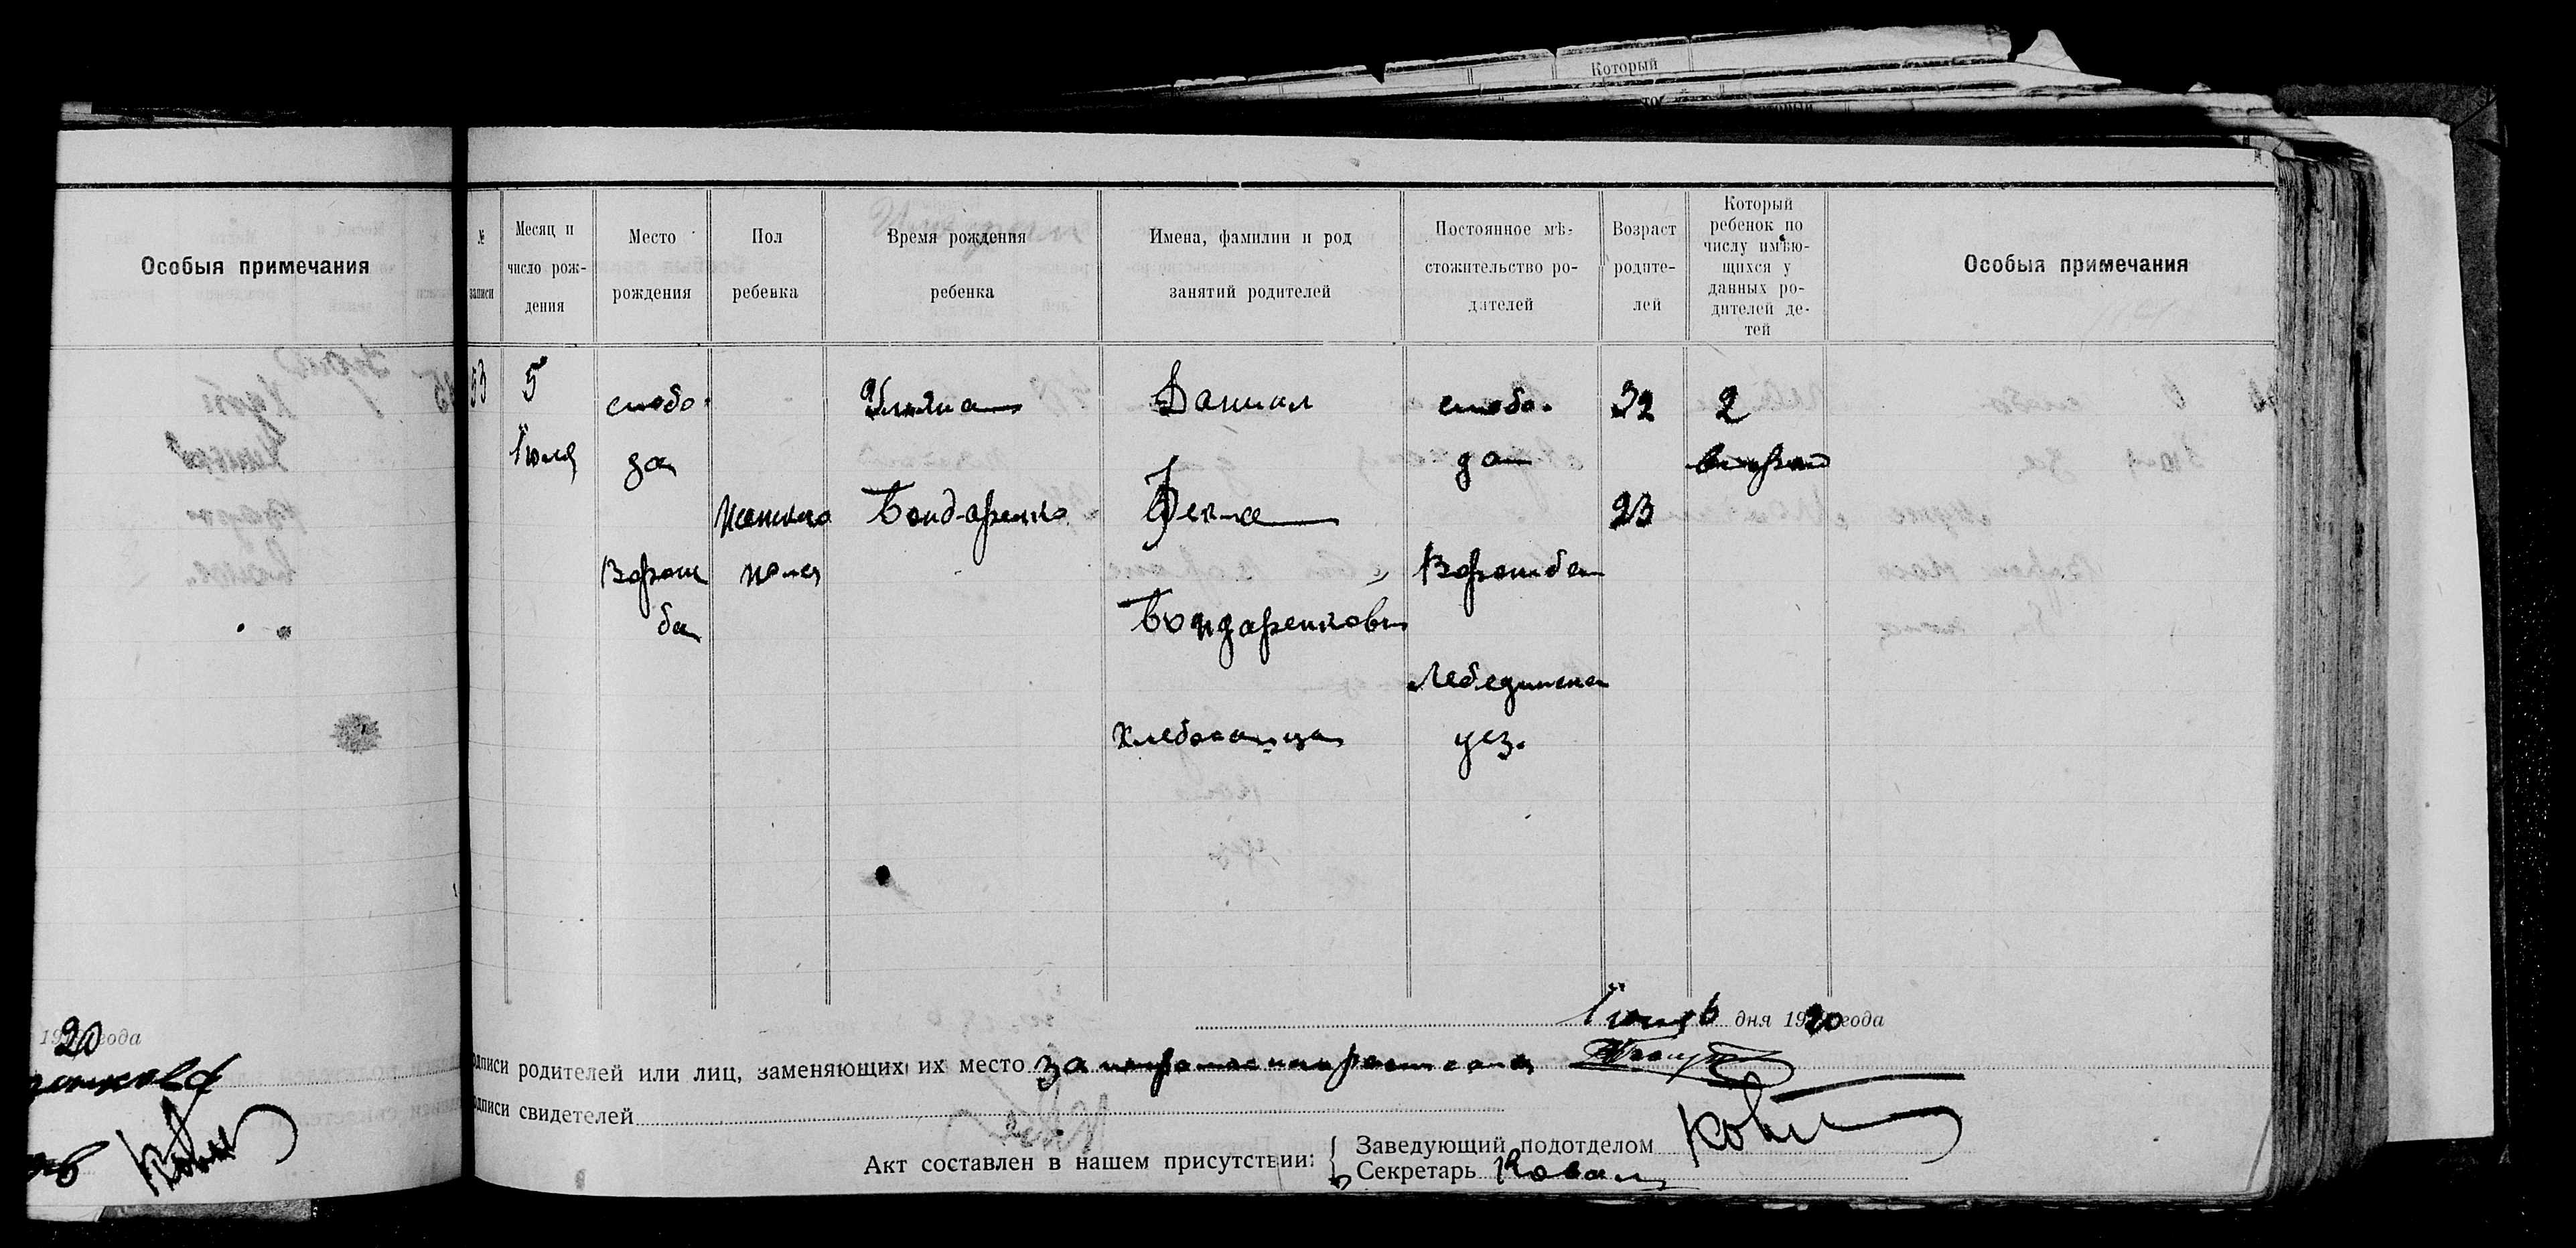 Который
Особыя примечания
№
записи
Месяц и
число рож-
дения
Место
рождения
Пол
ребенка
Время рождения
ребенка
Имена, фамилии и род
занятий родителей
Постоянное мѣ-
стожительство ро-
дителей
Возраст
родите-
лей
Который
ребенок по
числу имѣю-
щихся у
данных ро-
дителей де-
тей
Особыя примечания
53
5
Июля
слобо-
да
Ворож
ба
женско
пола
Улияна
Бондаренко
Даниил
Фекла
Бондаренковы
Хлебопашца
слобо-
да
Ворожба
Лебединска
уез.
32
23
2
Июля 6 дня 1920 года
1920 года
подписи родителей или лиц, заменяющих их место за неграмотных
подписи свидетелей
Акт составлен в нашем присутствии:
Заведующий подотделом
Секретарь Коваль